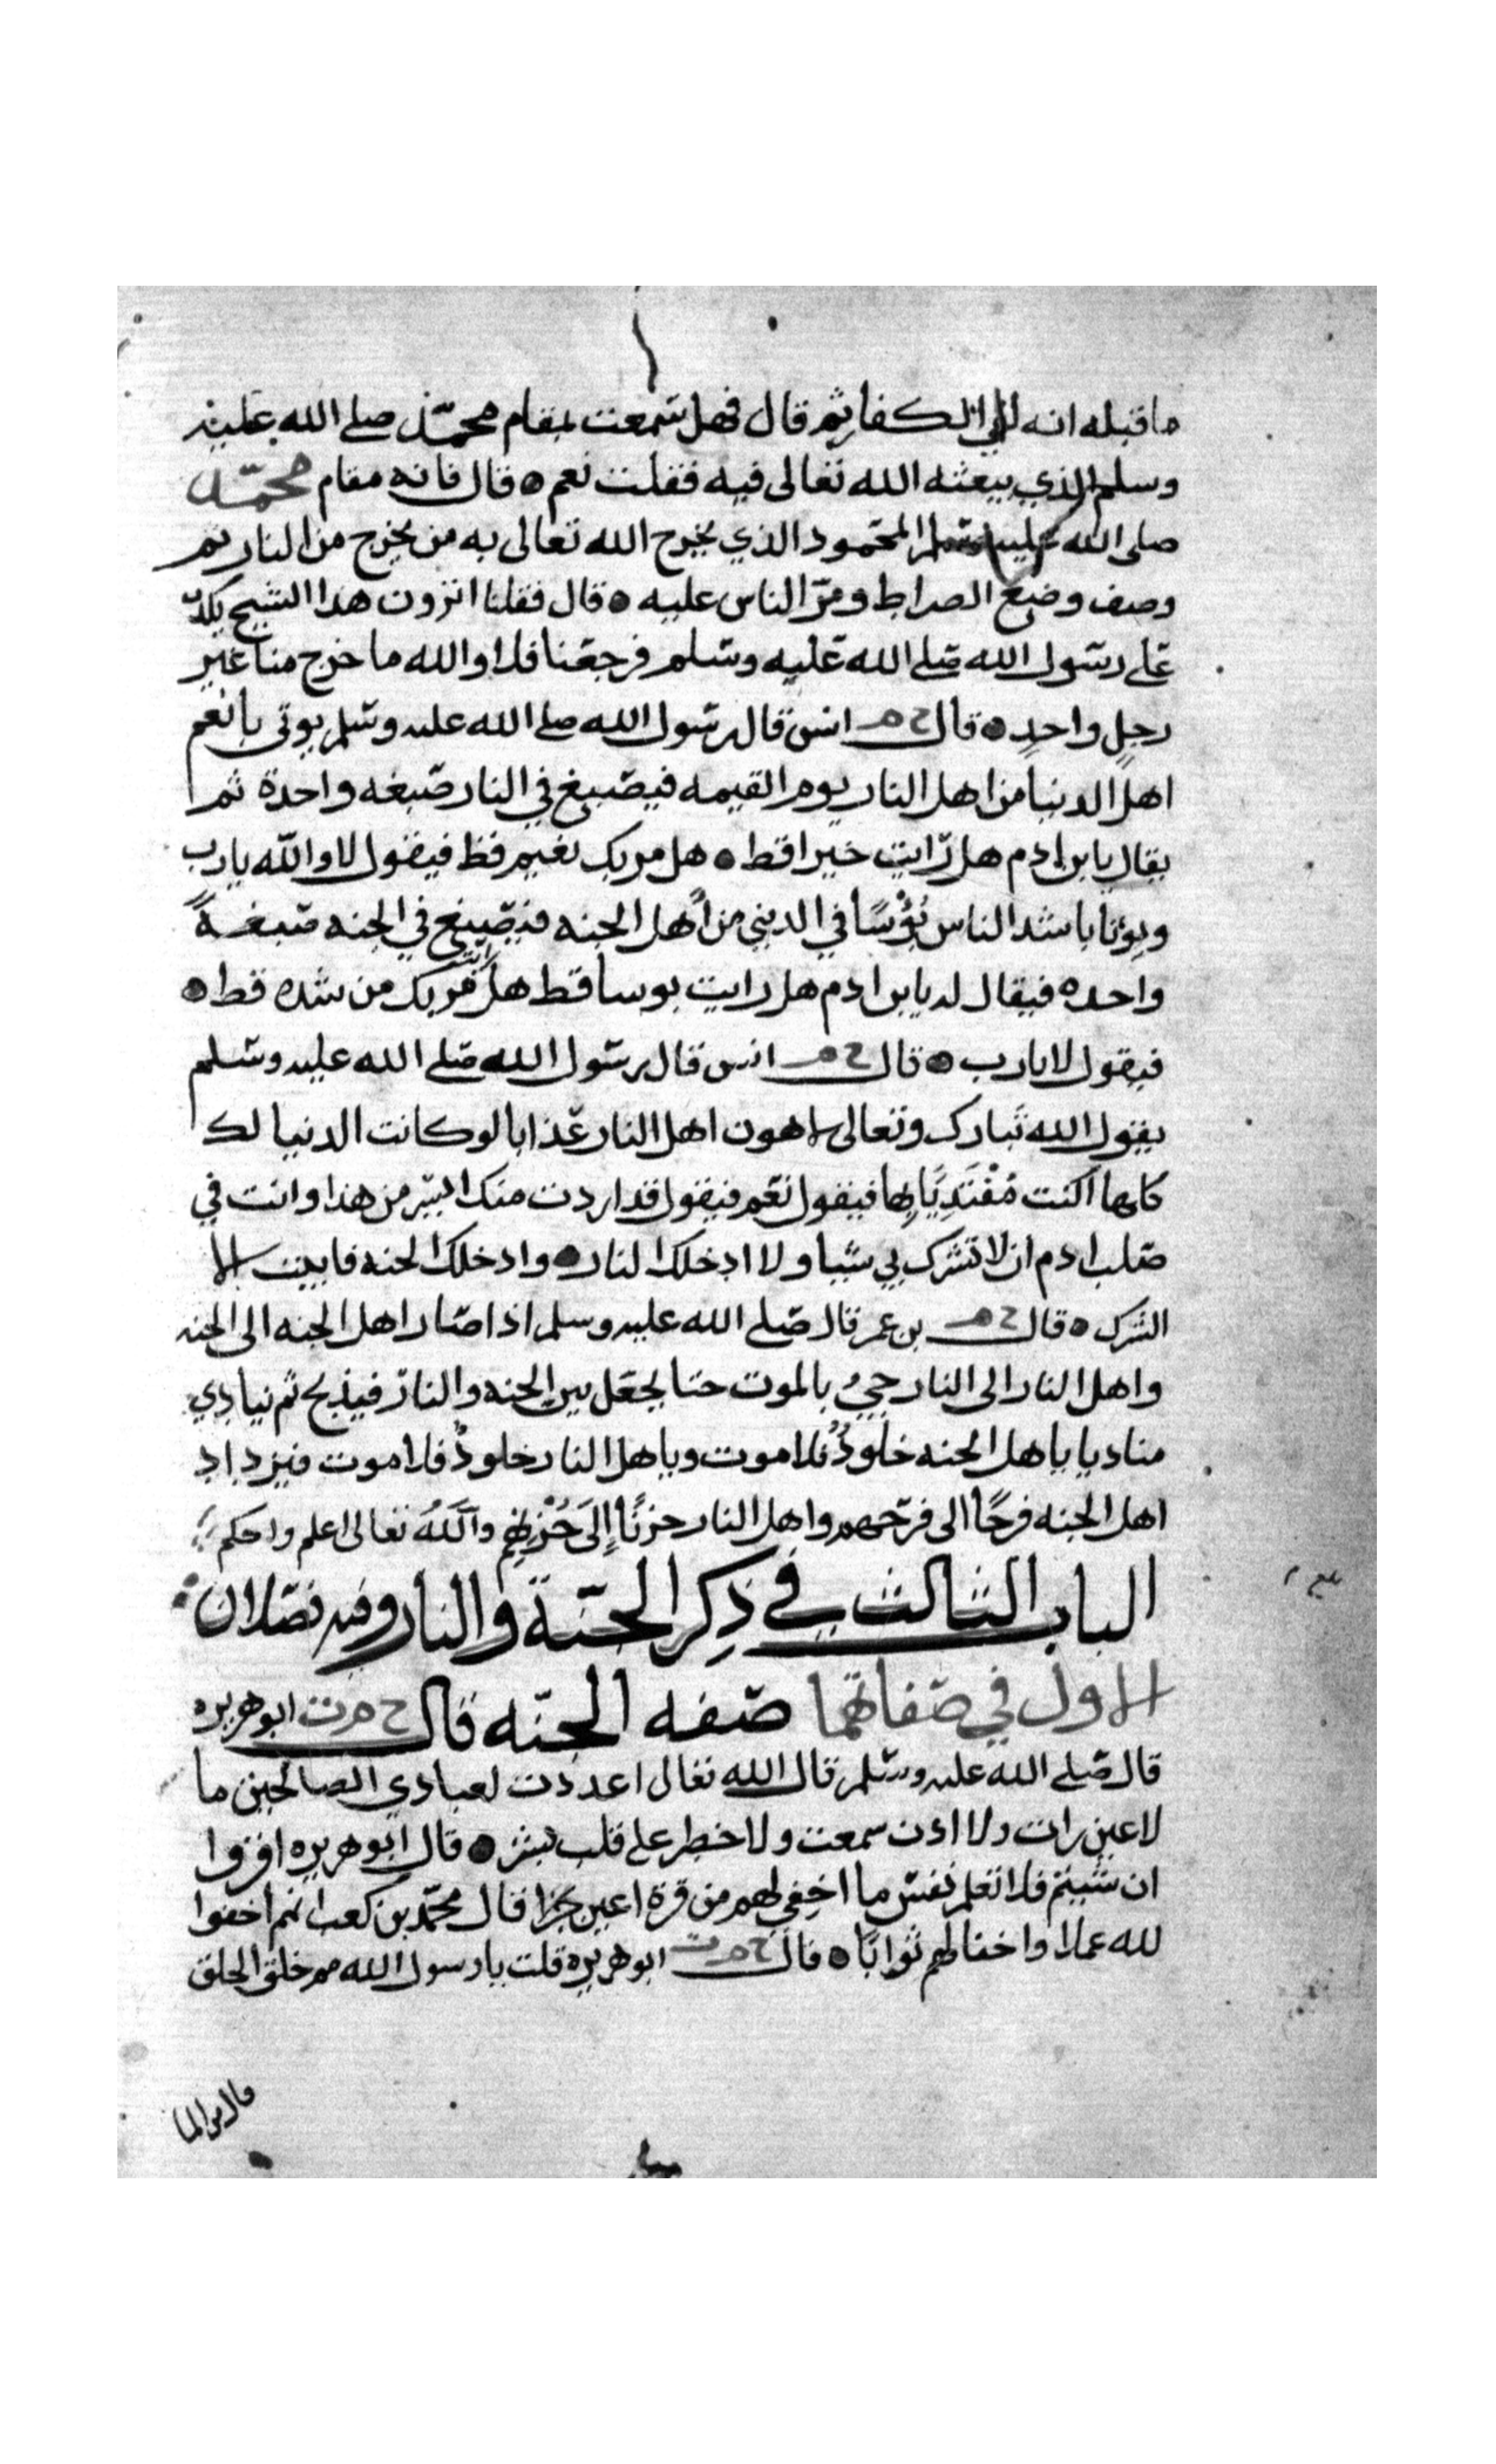 ما قبله انه في الكفار ثم قال فهل سمعت بمقام محمد صلى الله عليه
وسلم الذي يبعثه الله تعالى فيه فقلت نعم ه قال فانه مقام محمد
صلى الله عليه وسلم المحمود الذي يخرج الله تعالى به من يخرج من النار ثم
وصف وضع الصراط ومرّ الناس عليه ه قال فقلنا اترون هذا الشيخ يكذب
على رسول الله صلى الله عليه وسلم فرجعنا فلا والله ما خرج منا غير
رجلٍ واحدٍ ه قال خ م انس قال رسول الله صلى الله عليه وسلم يوتى بانعم
اهل الدنيا من اهل النار يوم القيمه فيصبغ في النار صبغه واحدة ثم
يقال يا بن ادم هل رايت خيرا قط ه هل مر بك نعيم قط فيقول لا والله يا رب
ويوتا باشد الناس بُؤْسًا في الدنيى من أهل الجنه فيصبغ في الجنه صبغةً
واحده فيقال له يا بن ادم هل رايت بوسا قط هل مر بك من شده قط ه
فيقول لا يا رب ه قال خ م انس قال رسول الله صلى الله عليه وسلم
يقول الله تبارك وتعالى لاهون اهل النار عذابا لو كانت الدنيا لك
كلها اكنت مُفْتَدِيًا بِها فيقول نعم فيقول قد اردت منك ايسر من هذا وانت في
صلب ادم ان لا تشرك بي شيا ولا ادخلك النار ه وادخلك الجنه فابيت الا
الشرك ه قال خ م بن عمر قال صلى الله عليه وسلم اذا صار اهل الجنه الى الجنه
واهل النار الى النار جيءَ بالموت حتا يجعل بين الجنه والنار فيذبح ثم ينادي
مناديا يا هل الجنه خلودٌ فلا موت ويا هل النار خلودٌ فلا موت فيزداد
اهل الجنه فرحًا الى فرحهم واهل النار حزنًا إِلَى حُزْنِهِم والله تعالى اعلم واحكم
الباب الثالث في ذكر الجنة والنار وفيه فصلان
الاول في صفاتهما صفه الجنه قال خ م ت ابو هريره
قال صلى الله عليه وسلم قال الله تعالى اعددت لعبادي الصالحين ما
لا عين رات ولا اذن سمعت ولا خطر على قلب بشر ه قال ابو هريره اقروا
ان شيتم فلا تعلم نفس ما اخفي لهم من قرة اعين جزا قال محمد بن كعب انهم اخفوا
لله عملا واخفا لهم ثوابًا ه قال خ م ت ابو هريره قلت يا رسول الله مم خلق الخلق
قال من الما